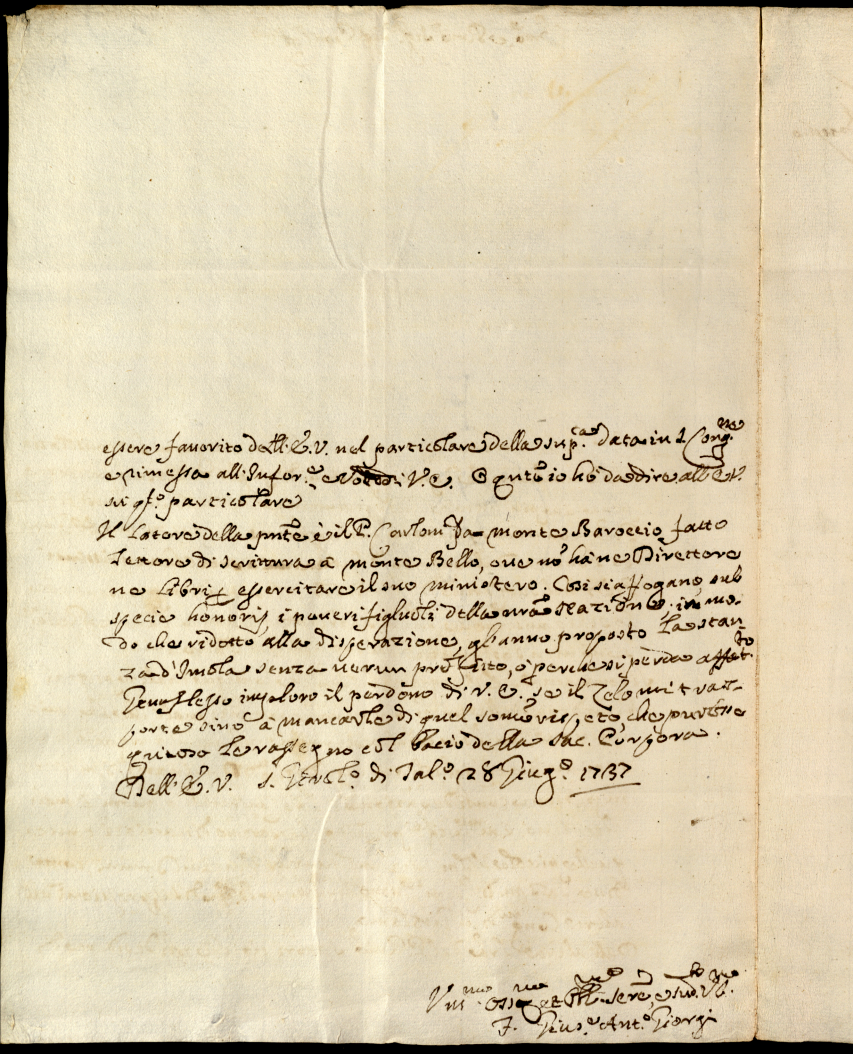 essere favorito dall'E.V. nel particolare della sup.ca data in Cong.ne
e rimessa all'Infor.e e Voto di V.E. E qnto io ho da dire all'E.V.
su qto particolare
Il Latore della pnte è il P. da monte Baroccio fatto
Lettore di scrittura a monte Bello, ove nõ ha ne Direttore
ne Libri p essercitare il suo ministero. Cosi si affogano sub
specie honoris i poveri figluoli della nrã Religione, in mo-
do che ridotto alla disperazione, gli anno proposto La stan-
za d'Imola senza verun profitto, e perche si perda affatto
Genuflesso imploro il perdono di V.E. se il Zelo mi tras-
porta sino à mancarle di quel somõ rispeto, che pur osse-
quioso Le rassegno col bacio della Sac. Porpora.
Dell'E.V. S. di Tal.o 28 Giug.o 1737
Vm.mo Oss.mo et Obl. Serv.e, e sud.
F. Gius.e Ant.o Giorgi